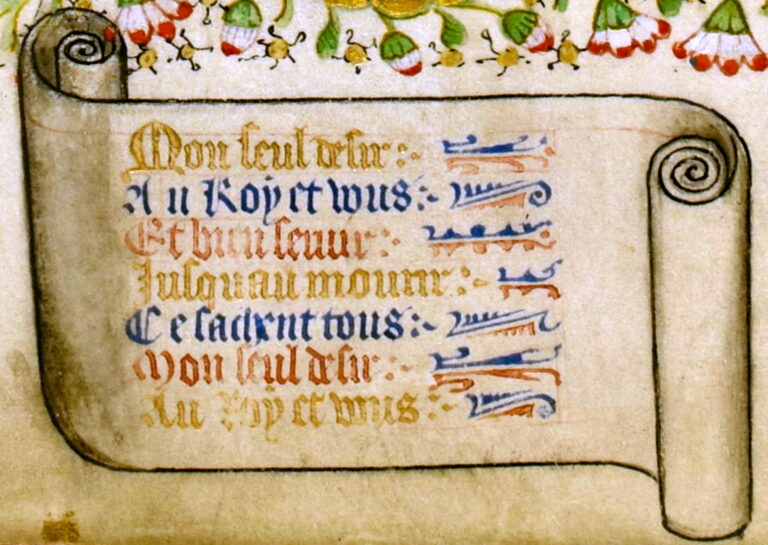 Mon seul desir :
Au Roy et vous :
Et bien seruir :
Jusqu au mourir :
Ce sachent tous :
Mon seul desir :
Au Roy et vous :